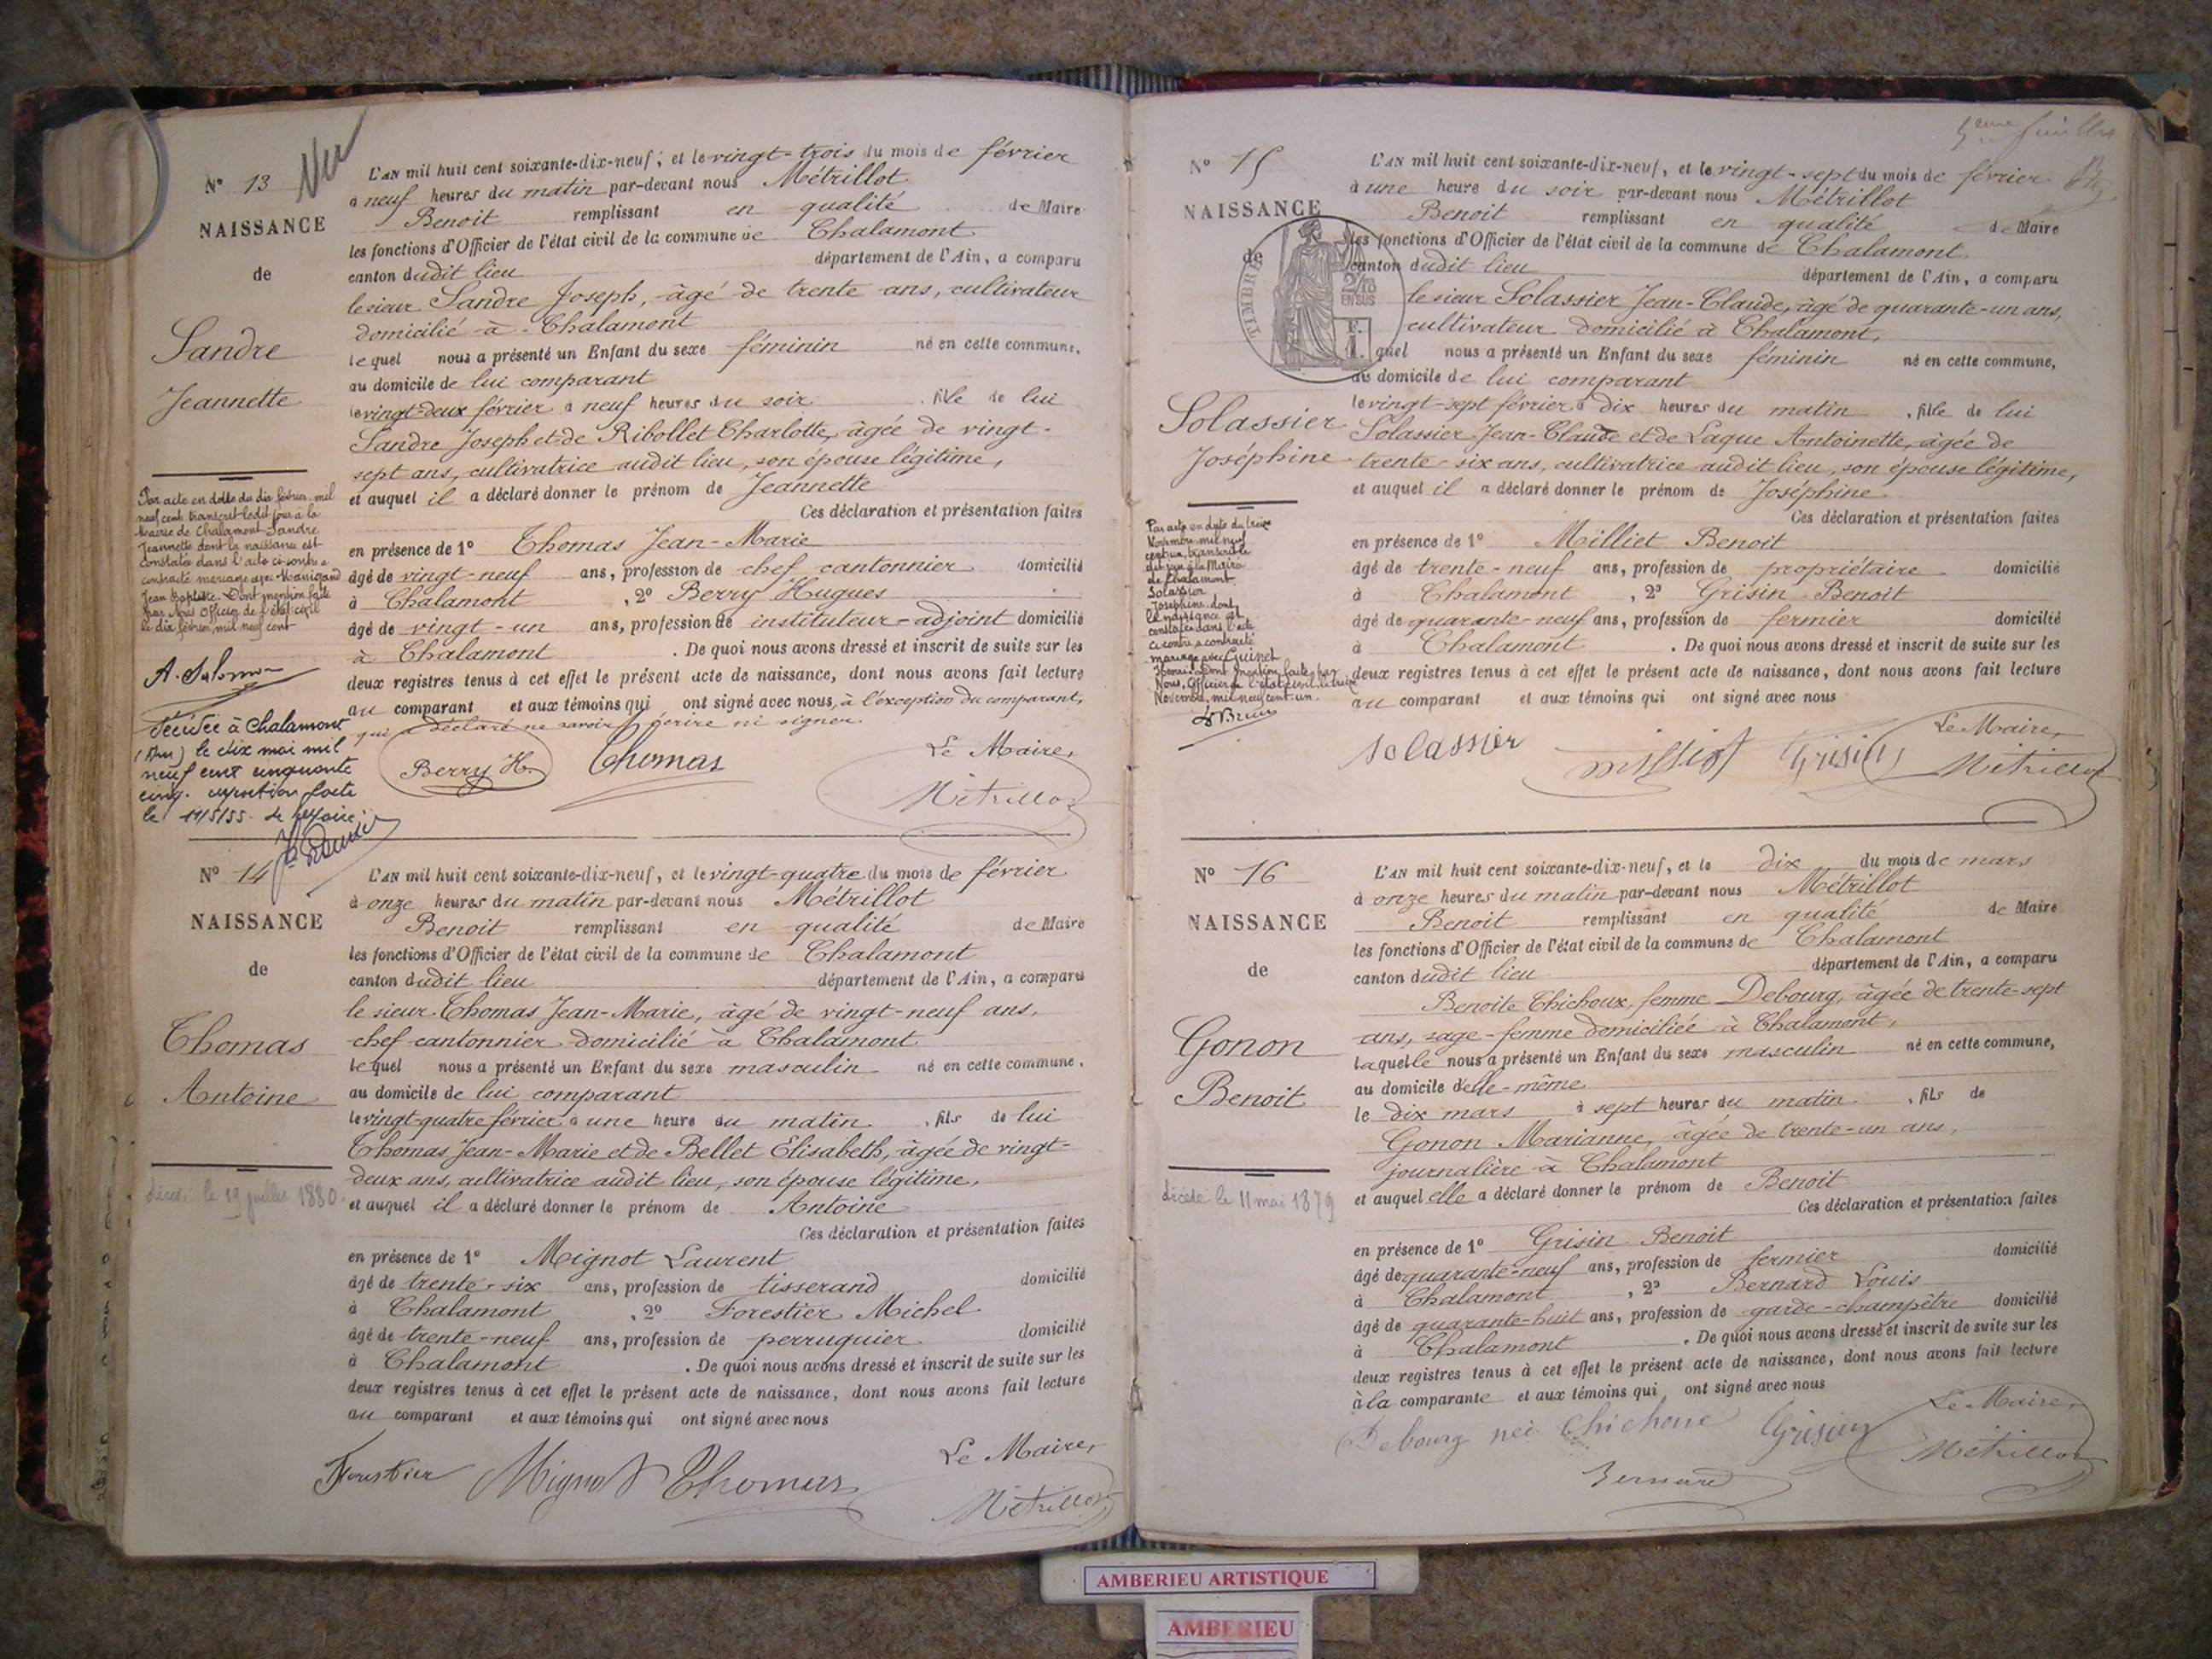 Vu
N° 13
NAISSANCE
de
Sandre
Jeannette
Par acte en date du dix février mil
neuf cent transcrit ledit jour à la
Mairie de Chalamont Sandre
Jeannette dont la naissance est
constatée dans l'acte ci-contre a
contracté mariage avec Manigand
Jean Baptiste. Dont mention faite
par Nous Officier de l'état civil
le dix février mil neuf cent
décédée à Chalamont
(Ain) le dix mai mil
neuf cent cinquante
cinq. mention faite
le 11/5/55. Le Maire
L'AN mil huit cent soixante-dix-neuf, et le vingt-trois du mois de février
à neuf heures du matin par-devant nous Métrillot
Benoit remplissant en qualité de Maire
les fonctions d'Officier de l'état civil de la commune de Chalamont
canton dudit lieu département de l'Ain, a comparu
le sieur Sandre Joseph, âgé de trente ans, cultivateur
domicilié à Chalamont
lequel nous a présenté un Enfant du sexe féminin né en cette commune,
au domicile de lui comparant
le vingt-deux février à neuf heures du soir, fille de lui
Sandre Joseph et de Ribollet Charlotte, âgée de vingt-
sept ans, cultivatrice audit lieu, son épouse légitime,
et auquel il a déclaré donner le prénom de Jeannette
Ces déclaration et présentation faites
en présence de 1° Thomas Jean-Marie
âgé de vingt-neuf ans, profession de chef cantonnier domicilié
à Chalamont, 2° Berry Hugues
âgé de vingt-un ans, profession de instituteur-adjoint domicilié
à Chalamont. De quoi nous avons dressé et inscrit de suite sur les
deux registres tenus à cet effet le présent acte de naissance, dont nous avons fait lecture
au comparant et aux témoins qui ont signé avec nous, à l'exception du comparant,
qui a déclaré ne savoir écrire ni signer.
Berry H. Thomas Le Maire,
Métrillot
N° 14
NAISSANCE
de
Thomas
Antoine
décédé le 19 juillet 1880
L'AN mil huit cent soixante-dix-neuf, et le vingt-quatre du mois de février
à onze heures du matin par-devant nous Métrillot
Benoit remplissant en qualité de Maire
les fonctions d'Officier de l'état civil de la commune de Chalamont
canton dudit lieu département de l'Ain, a comparu
le sieur Thomas Jean-Marie, âgé de vingt-neuf ans,
chef cantonnier domicilié à Chalamont
lequel nous a présenté un Enfant du sexe masculin né en cette commune,
au domicile de lui comparant
le vingt-quatre février à une heure du matin, fils de lui
Thomas Jean-Marie et de Bellet Elisabeth, âgée de vingt-
deux ans, cultivatrice audit lieu, son épouse légitime,
et auquel il a déclaré donner le prénom de Antoine
Ces déclaration et présentation faites
en présence de 1° Mignot Laurent
âgé de trente-six ans, profession de tisserand domicilié
à Chalamont, 2° Forestier Michel
âgé de trente-neuf ans, profession de perruquier domicilié
à Chalamont. De quoi nous avons dressé et inscrit de suite sur les
deux registres tenus à cet effet le présent acte de naissance, dont nous avons fait lecture
au comparant et aux témoins qui ont signé avec nous
Forestier Mignot Thomas Le Maire,
Métrillot
5eme feuillet
N° 15
NAISSANCE
de
TIMBRE
2/10
EN SUS
Solassier
Joséphine
Par acte en date du treize
Novembre mil neuf
cent un, transcrit le
dit jour à la Mairie
de Chalamont,
Solassier
Joséphine dont
la naissance est
constatée dans l'acte
ci-contre a contracté
mariage avec Guinet
Dont mention faite par
Nous, Officier de l'état civil, le treize
Novembre, mil neuf cent un.
L'AN mil huit cent soixante-dix-neuf, et le vingt-sept du mois de février
à une heure du soir par-devant nous Métrillot
Benoit remplissant en qualité de Maire
les fonctions d'Officier de l'état civil de la commune de Chalamont
canton dudit lieu département de l'Ain, a comparu
le sieur Solassier Jean-Claude, âgé de quarante-un ans,
cultivateur domicilié à Chalamont,
quel nous a présenté un Enfant du sexe féminin né en cette commune,
au domicile de lui comparant
le vingt-sept février à dix heures du matin, fille de lui
Solassier Jean-Claude et de Laque Antoinette, âgée de
trente-six ans, cultivatrice audit lieu, son épouse légitime,
et auquel il a déclaré donner le prénom de Joséphine
Ces déclaration et présentation faites
en présence de 1° Milliet Benoit
âgé de trente-neuf ans, profession de propriétaire domicilié
à Chalamont, 2° Grisin Benoit
âgé de quarante-neuf ans, profession de fermier domicilié
à Chalamont. De quoi nous avons dressé et inscrit de suite sur les
deux registres tenus à cet effet le présent acte de naissance, dont nous avons fait lecture
au comparant et aux témoins qui ont signé avec nous
Solassier Grisin Le Maire,
Métrillot
N° 16
NAISSANCE
de
Gonon
Benoit
décédé le 11 mai 1879
L'AN mil huit cent soixante-dix-neuf, et le dix du mois de mars
à onze heures du matin par-devant nous Métrillot
Benoit remplissant en qualité de Maire
les fonctions d'Officier de l'état civil de la commune de Chalamont
canton dudit lieu département de l'Ain, a comparu
Benoite Chichoux, femme Debourg, âgée de trente-sept
ans, sage-femme domiciliée à Chalamont,
laquelle nous a présenté un Enfant du sexe masculin né en cette commune,
au domicile d'elle-même
le dix mars à sept heures du matin, fils de
Gonon Marianne, âgée de trente-un ans,
journalière à Chalamont
et auquel elle a déclaré donner le prénom de Benoit
Ces déclaration et présentation faites
en présence de 1° Grisin Benoit
âgé de quarante-neuf ans, profession de fermier domicilié
à Chalamont, 2° Bernard Louis
âgé de quarante-huit ans, profession de garde-champêtre domicilié
à Chalamont. De quoi nous avons dressé et inscrit de suite sur les
deux registres tenus à cet effet le présent acte de naissance, dont nous avons fait lecture
à la comparante et aux témoins qui ont signé avec nous
Debourg Grisin Le Maire,
Bernard Métrillot
AMBERIEU ARTISTIQUE
AMBERIEU